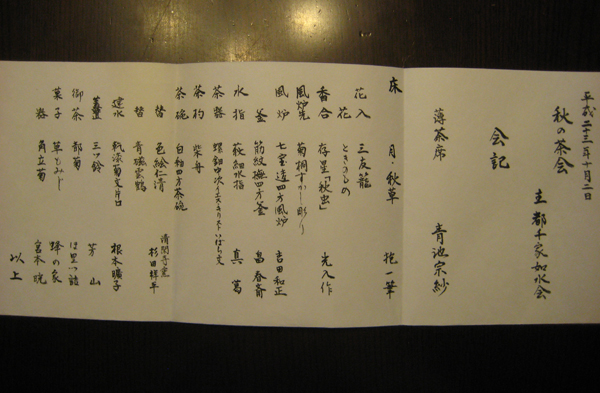 平成二十三年十月二日
秋の茶会
主 都千家如水会
会記
薄茶席 青池宗紗
床 月・秋草 抱一筆
花入 三友籠
花 ときのもの
香合 存星「秋虫」 光入作
風炉先 菊桐すかし彫り
風炉 七宝透四方風炉 吉田和正
釜 筋紋撫四方釜 畠春斎
水指 萩細水指 真葛
茶器 螺鈿中次
茶杓 柴舟
茶碗 白釉四方茶碗
替 色絵仁清
替 青磁雲鶴 清閑寺窯 杉田祥平
建水 菊文片口 根本曠子
蓋置 三ツ鈴 芳山
御茶 都菊 は里つ詰
菓子 草もみじ
器 角立菊 宮本
以上